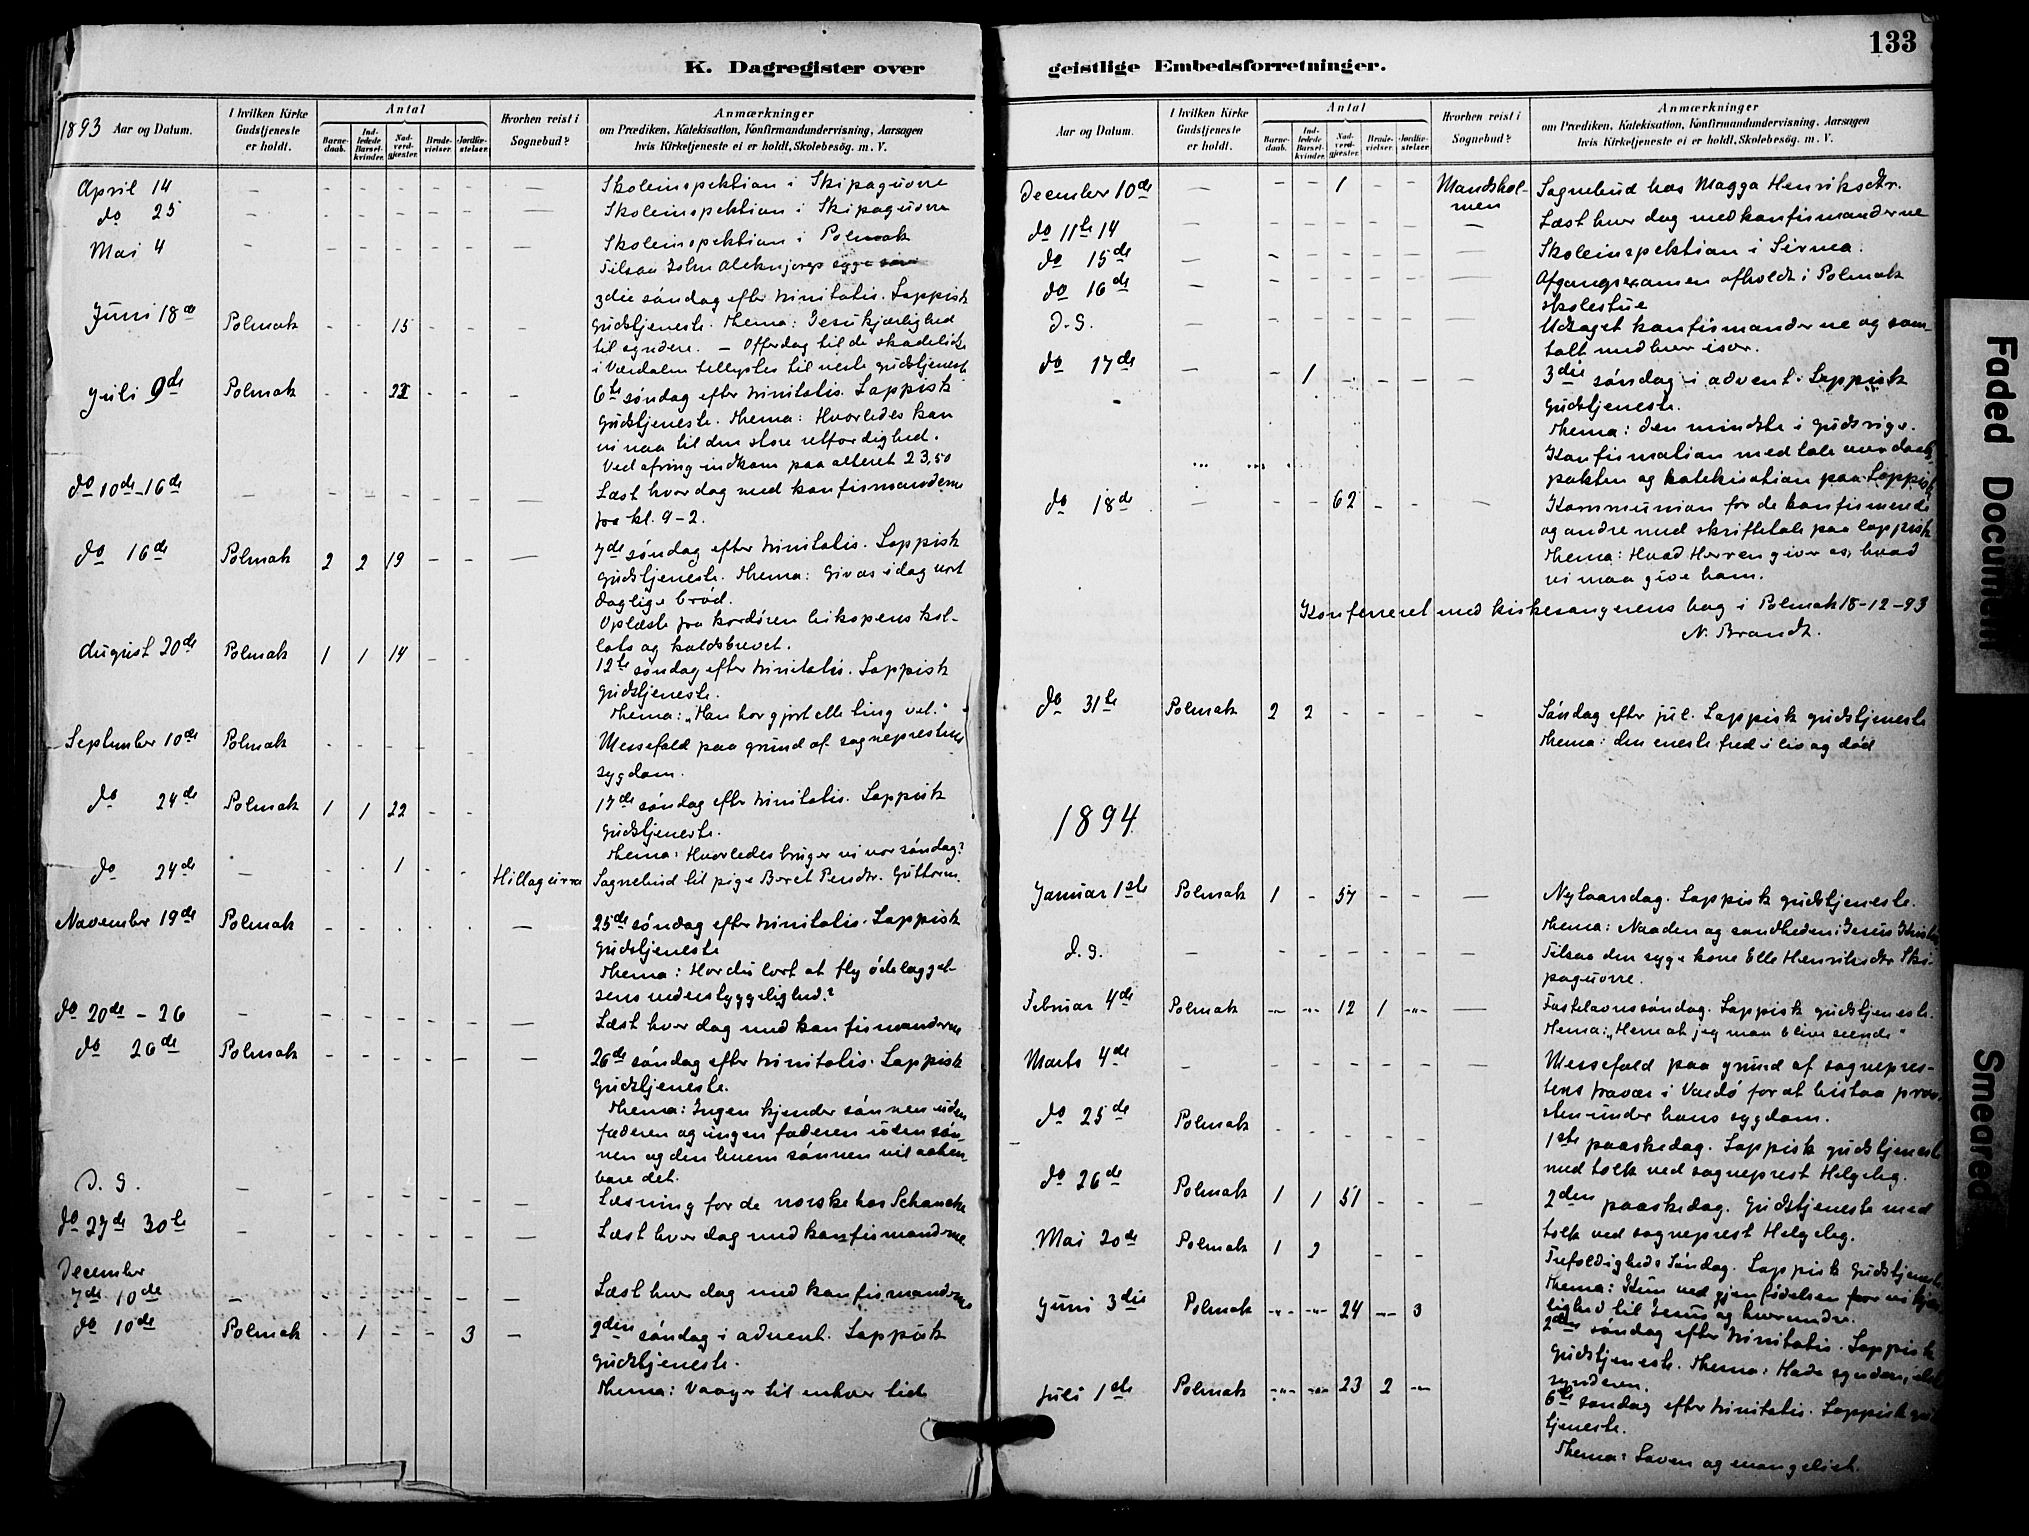 K. Dagregister over
1893 Aar og Datum.
I hvilken Kirke Gudstjeneste er holdt.
Antal
Barnedaab.
Indledede Barselkvinder.
Nadverdgjester.
Brudevielser.
Jordfæstelser.
Hvorhen reist i Sognebud?
Anmærkninger
om Prædiken, Katekisation, Konfirmandundervisning, Aarsagen
hvis Kirketjeneste ei er holdt, Skolebesög. m. V.
April 14 – – – – – – – Skoleinspektion i Skipaguovre
do 25 – – – – – – – Skoleinspektion i Skipaguovre
Mai 4 – – – – – – – Skoleinspektion i Polmak
Tilsaa John syge søn
Juni 18de Polmak – – 15 – – – 3die søndag efter trinitatis. Lappisk
gudstjeneste. Thema: Jesu kjærlighed
til syndere. – Offerdag til de skadelidte
i Værdalen tillystes til neste gudstjeneste
Juli 9de Polmak – – 22 – – – 6te søndag efter trinitatis. Lappisk
gudstjeneste. Thema: Hvorledes kan
vi naa til den store retfærdighed.
Ved ofring indkom paa alteret 23,50
do 10de–16de – – – – – – – Læst hver dag med konfirmanderne
fra kl. 9–2.
do 16de Polmak 2 2 19 – – – 7de søndag efter trinitatis. Lappisk
gudstjeneste. Thema: Giv os idag vort
daglige brød.
Oplæste fra kordøren bikspens kol-
lats og kaldsbrevet.
August 20de Polmak 1 1 14 – – 12te søndag efter trinitatis. Lappisk
gudstjeneste.
Thema: „Han har gjort alle ting vel.“
September 10de Polmak – – – – – Messefald paa grund af sogneprestens
sygdom.
do 24de Polmak 1 1 22 – – 17de søndag efter trinitatis. Lappisk
gudstjeneste.
Thema: Hvorledes bruger vi vor søndag?
do 24de – – – 1 – – Hillagurra Sognebud til pige Beret Pendtr. Guttorm.
November 19de Polmak – – – – – – 25de søndag efter trinitatis. Lappisk
gudstjeneste
Thema: Har du lært at fly ødelæggel-
sens vederstyggelighed?
do 20de – 26 – – – – – – – Læst hver dag med konfirmanderne
do 26de Polmak – – – – – – 26de søndag efter trinitatis. Lappisk
gudstjeneste.
Thema: Ingen kjender sønnen uden
faderen og ingen faderen uden søn-
nen og den hvem sønnen vil aaben-
bare det.
D. S. – – – – – – – Læsning for de norske hos Schanche
do 27de 30te – – – – – – – Læst hver dag med konfirmanderne
December
7de 10de – – – – – – – Læst hver dag med konfirmanderne
do 10de Polmak – 1 – – 3 – 2den søndag i advent. Lappisk
gudstjeneste.
Thema: Vaager til enhver tid
geistlige Embedsforretninger.
133
Aar og Datum.
I hvilken Kirke Gudstjeneste er holdt.
Antal
Barnedaab.
Indledede Barselkvinder.
Nadverdgjester.
Brudevielser.
Jordfæstelser.
Hvorhen reist i Sognebud?
Anmærkninger
om Prædiken, Katekisation, Konfirmandundervisning, Aarsagen
hvis Kirketjeneste ei er holdt, Skolebesög. m. V.
December 10de – – – 1 – – Mandshol-
men Sognebud hos Magga Henriksdtr.
do 11te 14 – – – – – – – Læst hver dag med konfirmanderne
do 15de – – – – – – – Skoleinspektion i Sirma.
do 16de – – – – – – – Afgangsexamen afholdt i Polmak
skolestue
D. S. – – – – – – – Udtaget konfirmanderne og sam-
talt med hver især.
do 17de – – 1 – – – – 3die søndag i advent. Lappisk
gudstjeneste.
Thema: Den mindste i gudsrige.
Konfirmation med tale over daabs-
pakten og katekisation paa Lappisk
do 18de – – – 62 – – – Kommunion for de konfirmerede
og andre med skriftetale paa lappisk
Thema: Hvad Herren giver os, hvad
vi maa give ham.
Konfereret med kirkesangerens bog i Polmak 18-12-93
N. Brandt.
do 31te Polmak 2 2 – – – – Søndag efter jul. Lappisk gudstjeneste
Thema: den eneste fred i liv og død
1894
Januar 1ste Polmak 1 – 57 – – – Nytaarsdag. Lappisk gudstjeneste.
Thema: Naaden og sandheden i Jesus Kristus
D. S. – – – – – – – Tilsaa den syge kone Elle Henriksdtr Ski-
paguovre.
Februar 4de Polmak – – 12 1 – – Fastelavnssøndag. Lappisk gudstjeneste.
Thema: „Herre at jeg maa blive seende“
Marts 4de – – – – – – – Messefald paa grund af sognepres-
tens fravær i Vardø for at bistaa prov-
sten under hans sygdom.
do 25de Polmak – – – – – 1ste paaskedag. Lappisk gudstjeneste
med tolk ved sogneprest Helgeby.
do 26de Polmak 1 1 51 – – – 2den paaskedag. Gudstjeneste med
tolk ved sogneprest Helgeby.
Mai 20de Polmak 1 2 – – Trefoldigheds Søndag. Lappisk gudstjeneste
Thema: Kun ved gjenfødelsen faar vi kjær-
lighed til Jesus og hverandre.
Juni 3die Polmak – – 24 – 3 2den søndag efter trinitatis. Lappisk
gudstjeneste. Thema: Hade synden, elsk
synderen.
Juli 1ste Polmak – – 23 2 – 6te søndag efter trinitatis. Lappisk gud-
tjeneste.
Thema: Loven og evangeliet.
Faded Document
Smeared